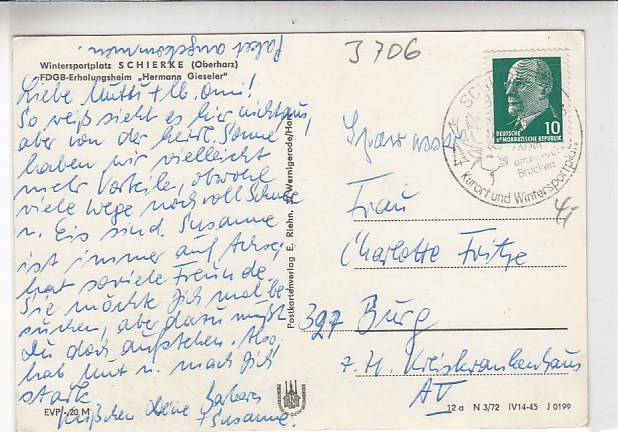 Paket angekommen.
Wintersportplatz SCHIERKE (Oberharz)
FDGB-Erholungsheim „Hermann Gieseler"
Liebe Mutti + Omi!
So weiß sieht es hier nicht aus,
aber von der herrl. Sonne
haben wir vielleicht
mehr Vorteile, obwohl
viele Wege noch voll Schnee
u. Eis sind. Susanne
ist immer auf Achse,
hat soviele Freunde.
Sie möchte Dich mal be-
suchen, aber dazu mußt
Du doch aufstehen. Also,
hab Mut u. mach Dich
stark
Deine Barbara
+ Susanne.
EVP -.20 M
Postkartenverlag E. Riehn, Wernigerode/Harz
J 706
DEUTSCHE
DEMOKRATISCHE REPUBLIK
10
Brocken
Kurort und Wintersportplatz
Frau
Charlotte Fritze
327 Burg
z. Zt. Kreiskrankenhaus
12 a N 3/72 IV14-45 J 0199